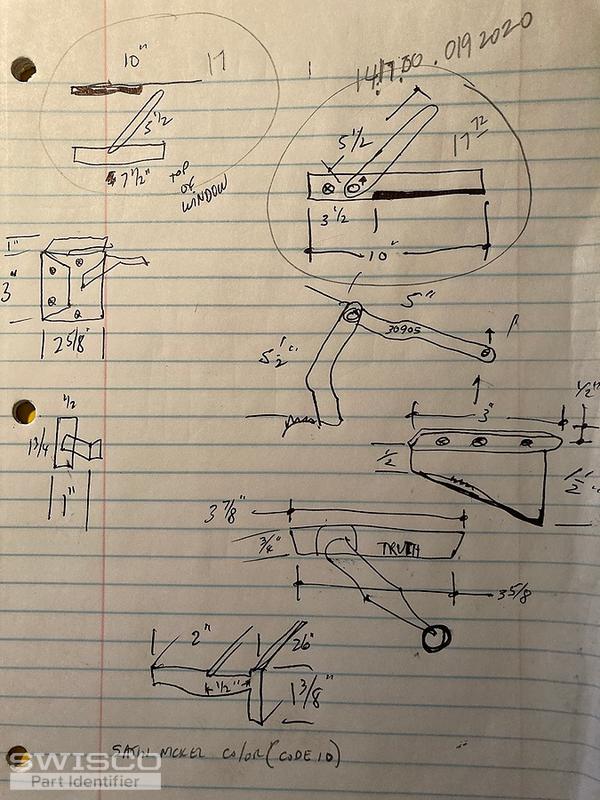 10" 17
1417.00.0192020
5 1/2
7 1/2" TOP OF WINDOW
5 1/2
17 72
3 1/2
10"
1"
3"
2 5/8"
5"
30905
5 1/2"
1/2
1 3/4
1"
3"
1/2"
1/2
1 1/2"
3 7/8"
3/4"
TRUTH
3 5/8
2" 26"
1/2"
1 3/8"
SATIN NICKEL COLOR (CODE 10)
SWISCO
Part Identifier